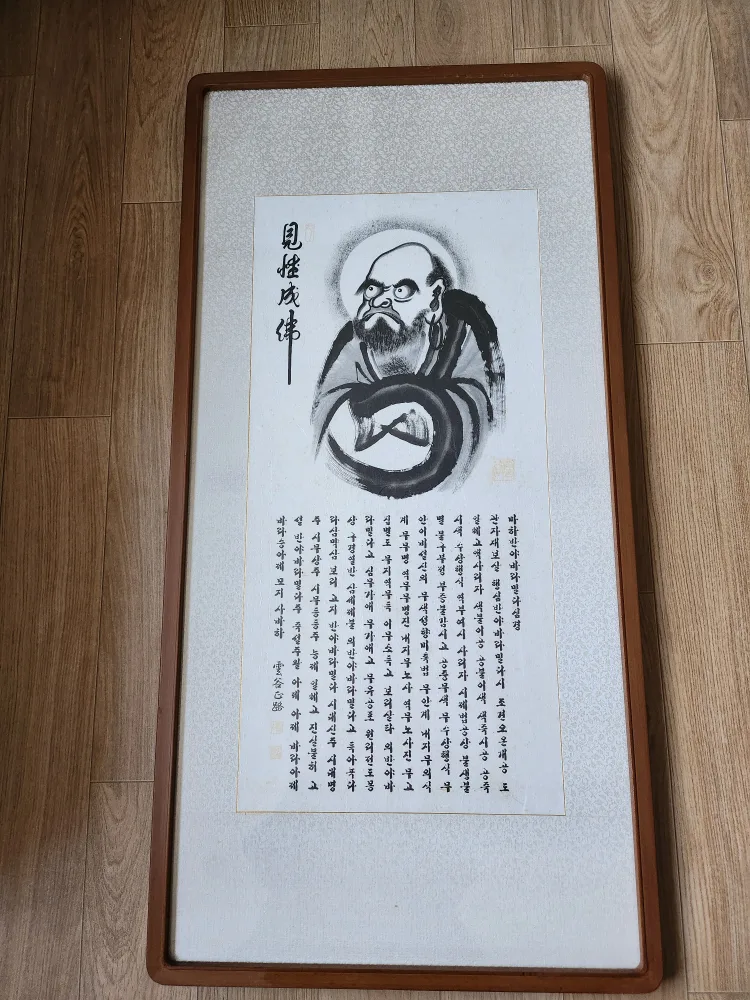 見性成佛
마하반야바라밀다심경
관자재보살 행심반야바라밀다시 조견오온개공 도
일체고액사리자 색불이공 공불이색 색즉시공 공즉
시색 수상행식 역부여시 사리자 시제법공상 불생불
멸 불구부정 부증불감시고 공중무색 무수상행식 무
안이비설신의 무색성향미촉법 무안계 내지무의식
계 무무명 역무무명진 내지무노사 역무노사진 무고
집멸도 무지역무득 이무소득고 보리살타 의반야바
라밀다고 심무가애 무가애고 무유공포 원리전도몽
상 구경열반 삼세제불 의반야바라밀다고 득아뇩다
라삼먁삼 보리 고지 반야바라밀다 시대신주 시대명
주 시무상주 시무등등주 능제 일체고 진실불허 고
설 반야바라밀다주 즉설주왈 아제 아제 바라아제
바라승아제 모지 사바하 雲谷